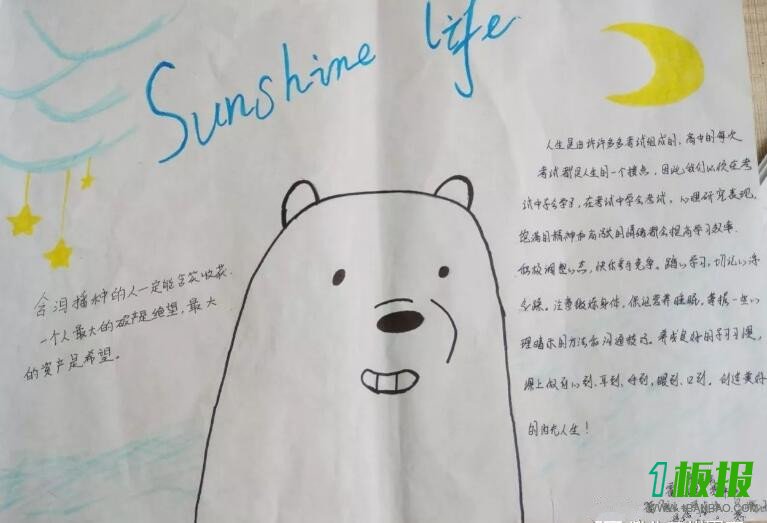 Sunshine life
含泪播种的人一定能含笑收获.
一个人最大的破产是绝望,最大
的资产是希望。
人生是由许许多多考试组成的,高中的每次
考试都是人生的一个接点,因此我们必须在考
试中学会学习,在考试中学会考试,心理研究表现,
饱满的精神和高涨的情绪都会提高学习效率.
积极调整心态,快乐参与竞争。踏心学习,切记心浮
气躁。注意锻炼身体,保证营养睡眠,掌握一些心
理暗示的方法和沟通技巧。养成良好的学习习惯,
课上做到心到、耳到、手到、眼到、口到。创造美好
的阳光人生!
1板报
WWW.1BANBAO.COM